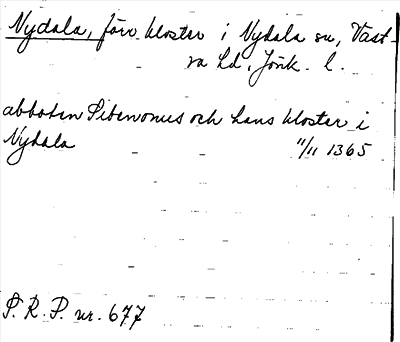 Nydala, förv. kloster i Nydala sn, Väst-
ra hd, Jönk. l.
abboten Sibernonus och hans kloster i
Nydala 11/11 1365
S. R. P. nr. 677